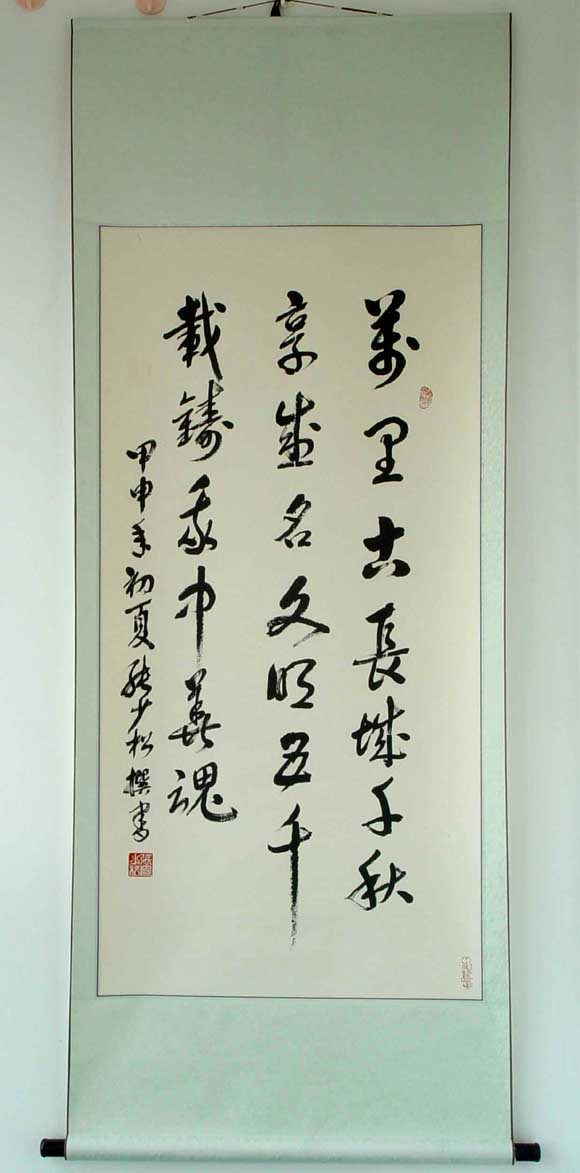 萬里古長城千秋
享盛名文明五千
載鑄我中華魂
甲申年初夏張少松撰書